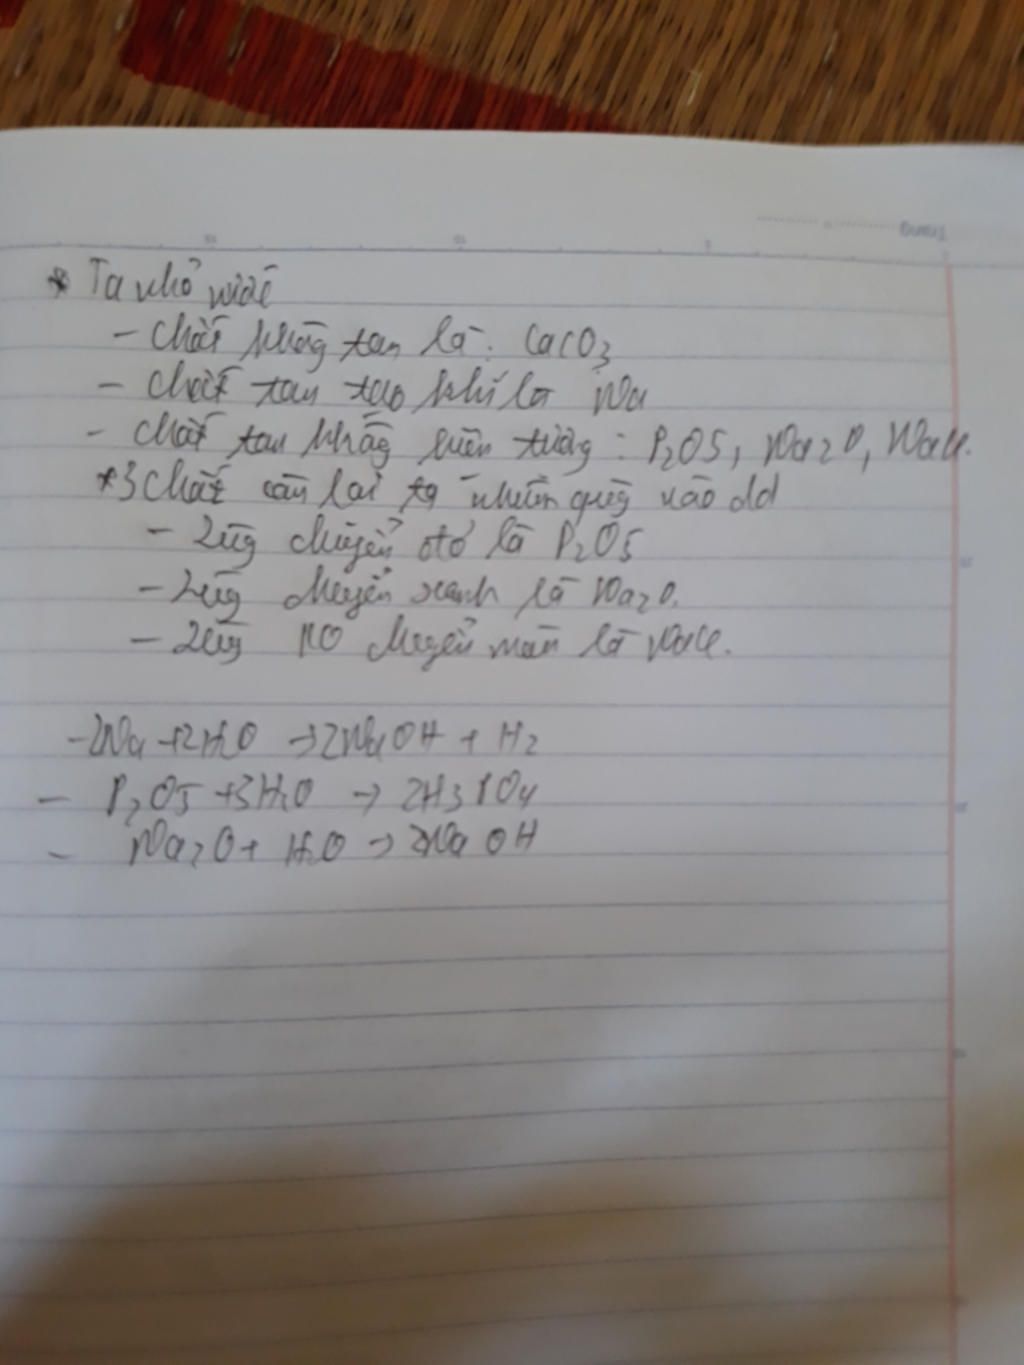 * Ta nhỏ nước
- Chất không tan là: CaCO3
- Chất tan tạo khí là Na
- Chất tan không hiện tượng: P2O5, Na2O, NaCl.
*3 chất còn lại ta nhúng quỳ vào dd
- Quỳ chuyển đỏ là P2O5
- Quỳ chuyển xanh là Na2O.
- Quỳ ko chuyển màu là NaCl.
- 2Na + 2H2O → 2NaOH + H2
- P2O5 + 3H2O → 2H3PO4
- Na2O + H2O → 2NaOH
Trang